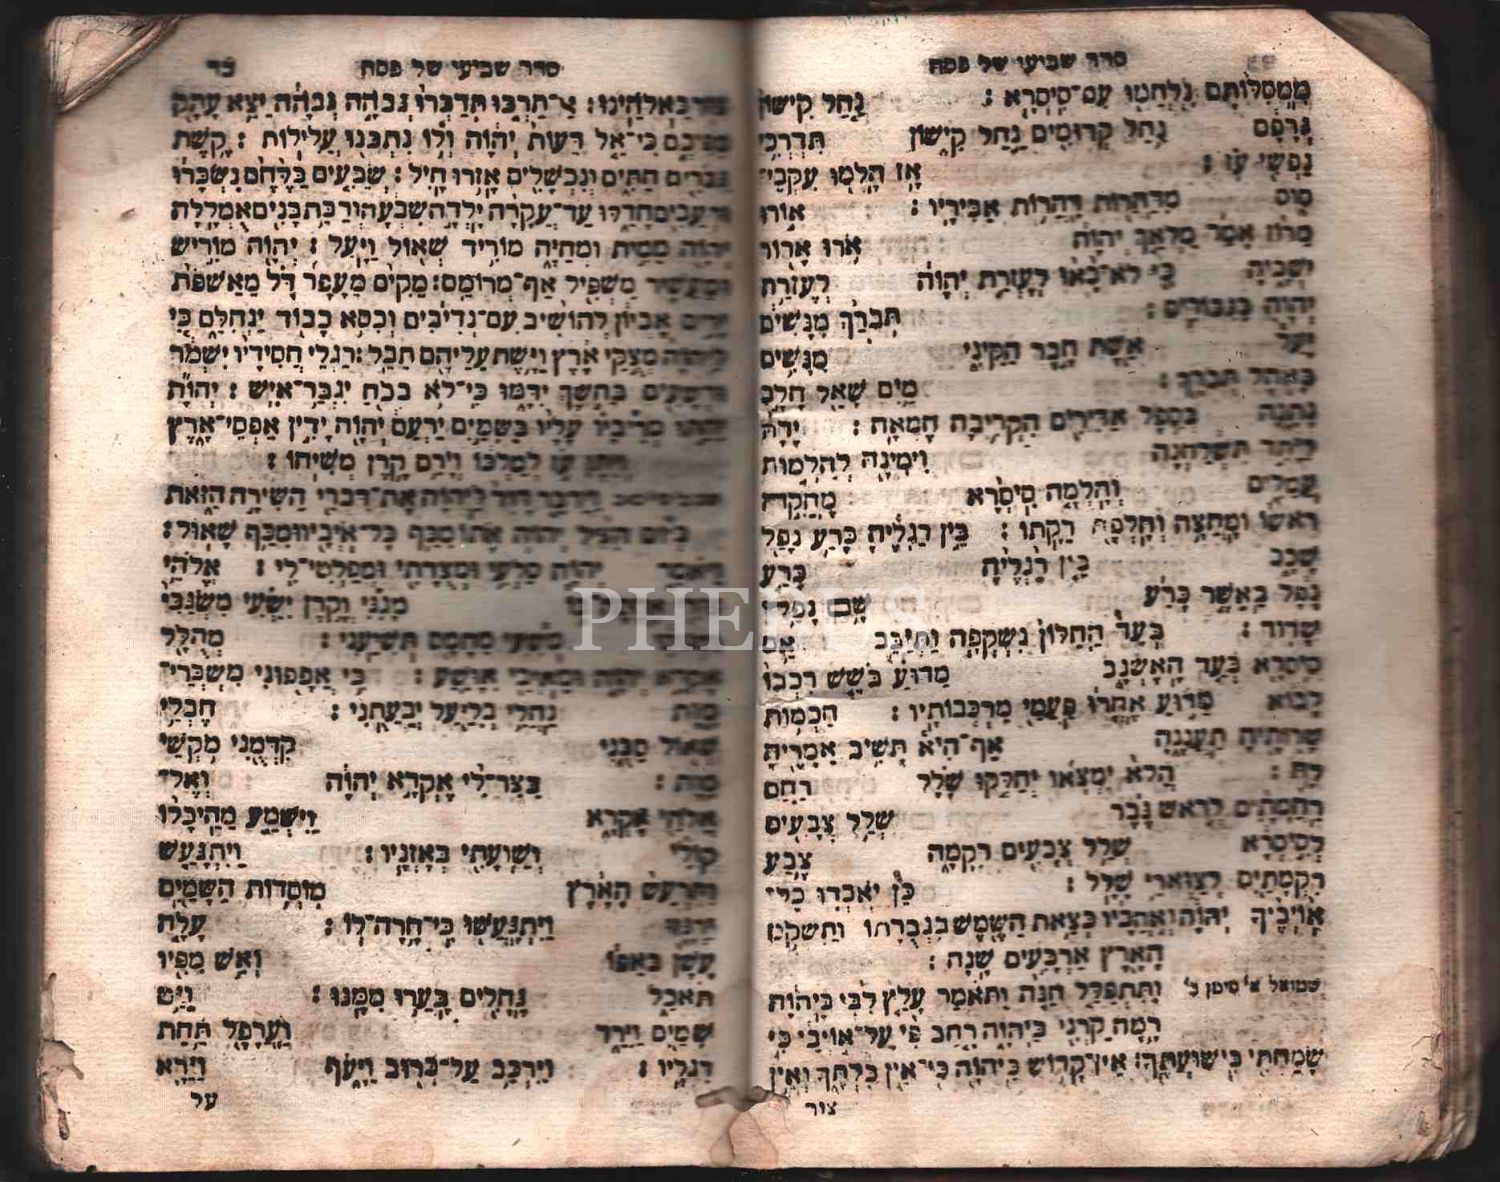 סדר שביעי של פסח
מִמְּסִלּוֹתָם נִלְחֲמוּ עִם־סִיסְרָא : נַחַל קִישׁוֹן
גְּרָפָם נַחַל קְדוּמִים נַחַל קִישׁוֹן תִּדְרְכִי
נַפְשִׁי עֹז : אָז הָלְמוּ עִקְּבֵי־
סוּס מִדַּהֲרוֹת דַּהֲרוֹת אַבִּירָיו : אוֹרוּ
מֵרוֹז אָמַר מַלְאַךְ יְהוָה אֹרוּ אָרוֹר
יֹשְׁבֶיהָ כִּי לֹא־בָאוּ לְעֶזְרַת יְהוָה לְעֶזְרַת
יְהוָה בַּגִּבּוֹרִים : תְּבֹרַךְ מִנָּשִׁים
יָעֵל אֵשֶׁת חֶבֶר הַקֵּינִי מִנָּשִׁים
בָּאֹהֶל תְּבֹרָךְ : מַיִם שָׁאַל חָלָב
נָתָנָה בְּסֵפֶל אַדִּירִים הִקְרִיבָה חֶמְאָה : יָדָהּ
לַיָּתֵד תִּשְׁלַחְנָה וִימִינָהּ לְהַלְמוּת
עֲמֵלִים וְהָלְמָה סִיסְרָא מָחֲקָה
רֹאשׁוֹ וּמָחֲצָה וְחָלְפָה רַקָּתוֹ : בֵּין רַגְלֶיהָ כָּרַע נָפַל
שָׁכָב בֵּין רַגְלֶיהָ כָּרַע
נָפָל בַּאֲשֶׁר כָּרַע שָׁם נָפַל
שָׁדוּד : בְּעַד הַחַלּוֹן נִשְׁקְפָה וַתְּיַבֵּב אֵם
סִיסְרָא בְּעַד הָאֶשְׁנָב מַדּוּעַ בֹּשֵׁשׁ רִכְבּוֹ
לָבוֹא מַדּוּעַ אֶחֱרוּ פַּעֲמֵי מַרְכְּבוֹתָיו : חַכְמוֹת
שָׂרוֹתֶיהָ תַּעֲנֶנָּה אַף־הִיא תָּשִׁיב אֲמָרֶיהָ
לָהּ : הֲלֹא יִמְצְאוּ יְחַלְּקוּ שָׁלָל רַחַם
רַחֲמָתַיִם לְרֹאשׁ גֶּבֶר שְׁלַל צְבָעִים
לְסִיסְרָא שְׁלַל צְבָעִים רִקְמָה צֶבַע
רִקְמָתַיִם לְצַוְּארֵי שָׁלָל : כֵּן יֹאבְדוּ כָל־
אוֹיְבֶיךָ יְהוָה וְאֹהֲבָיו כְּצֵאת הַשֶּׁמֶשׁ בִּגְבֻרָתוֹ וַתִּשְׁקֹט
הָאָרֶץ אַרְבָּעִים שָׁנָה :
שמואל א׳ סימן ב׳ וַתִּתְפַּלֵּל חַנָּה וַתֹּאמַר עָלַץ לִבִּי בַּיהוָה
רָמָה קַרְנִי בַּיהוָה רָחַב פִּי עַל־אוֹיְבַי כִּי
שָׂמַחְתִּי בִּישׁוּעָתֶךָ : אֵין־קָדוֹשׁ כַּיהוָה כִּי־אֵין בִּלְתֶּךָ וְאֵין
צור
סדר שביעי של פסח כד
צוּר כֵּאלֹהֵינוּ : אַל־תַּרְבּוּ תְדַבְּרוּ גְּבֹהָה גְבֹהָה יֵצֵא עָתָק
מִפִּיכֶם כִּי־אֵל דֵּעוֹת יְהוָה וְלוֹ נִתְכְּנוּ עֲלִילוֹת : קֶשֶׁת
גִּבֹּרִים חַתִּים וְנִכְשָׁלִים אָזְרוּ חָיִל : שְׂבֵעִים בַּלֶּחֶם נִשְׂכָּרוּ
וּרְעֵבִים חָדֵלּוּ עַד־עֲקָרָה יָלְדָה שִׁבְעָה וְרַבַּת בָּנִים אֻמְלָלָה
יְהוָה מֵמִית וּמְחַיֶּה מוֹרִיד שְׁאוֹל וַיָּעַל : יְהוָה מוֹרִישׁ
וּמַעֲשִׁיר מַשְׁפִּיל אַף־מְרוֹמֵם : מֵקִים מֵעָפָר דָּל מֵאַשְׁפֹּת
יָרִים אֶבְיוֹן לְהוֹשִׁיב עִם־נְדִיבִים וְכִסֵּא כָבוֹד יַנְחִלֵם כִּי
לַיהוָה מְצֻקֵי אֶרֶץ וַיָּשֶׁת עֲלֵיהֶם תֵּבֵל : רַגְלֵי חֲסִידָיו יִשְׁמֹר
וּרְשָׁעִים בַּחֹשֶׁךְ יִדָּמּוּ כִּי־לֹא בְכֹחַ יִגְבַּר־אִישׁ : יְהוָה
יֵחַתּוּ מְרִיבָיו עָלָיו בַּשָּׁמַיִם יַרְעֵם יְהוָה יָדִין אַפְסֵי־אָרֶץ
וְיִתֶּן־עֹז לְמַלְכּוֹ וְיָרֵם קֶרֶן מְשִׁיחוֹ :
וַיְדַבֵּר דָּוִד לַיהוָה אֶת־דִּבְרֵי הַשִּׁירָה הַזֹּאת
בְּיוֹם הִצִּיל יְהוָה אֹתוֹ מִכַּף כָּל־אֹיְבָיו וּמִכַּף שָׁאוּל :
וַיֹּאמַר יְהוָה סַלְעִי וּמְצֻדָתִי וּמְפַלְטִי־לִי : אֱלֹהֵי
מָגִנִּי וְקֶרֶן יִשְׁעִי מִשְׂגַּבִּי
מֹשִׁעִי מֵחָמָס תֹּשִׁעֵנִי : מְהֻלָּל
אֶקְרָא יְהוָה וּמֵאֹיְבַי אִוָּשֵׁעַ : כִּי אֲפָפֻנִי מִשְׁבְּרֵי־
מָוֶת נַחֲלֵי בְלִיַּעַל יְבַעֲתֻנִי : חֶבְלֵי
שְׁאוֹל סַבֻּנִי קִדְּמֻנִי מֹקְשֵׁי
מָוֶת : בַּצַּר־לִי אֶקְרָא יְהוָה וְאֶל־
אֱלֹהַי אֶקְרָא וַיִּשְׁמַע מֵהֵיכָלוֹ
קוֹלִי וְשַׁוְעָתִי בְּאָזְנָיו : וַיִּתְגָּעַשׁ
וַתִּרְעַשׁ הָאָרֶץ מוֹסְדוֹת הַשָּׁמַיִם
יִרְגָּזוּ וַיִּתְגָּעֲשׁוּ כִּי־חָרָה־לוֹ : עָלָה
עָשָׁן בְּאַפּוֹ וְאֵשׁ מִפִּיו
תֹּאכֵל גֶּחָלִים בָּעֲרוּ מִמֶּנּוּ : וַיֵּט
שָׁמַיִם וַיֵּרַד וַעֲרָפֶל תַּחַת
רַגְלָיו : וַיִּרְכַּב עַל־כְּרוּב וַיָּעֹף וַיֵּרָא
על